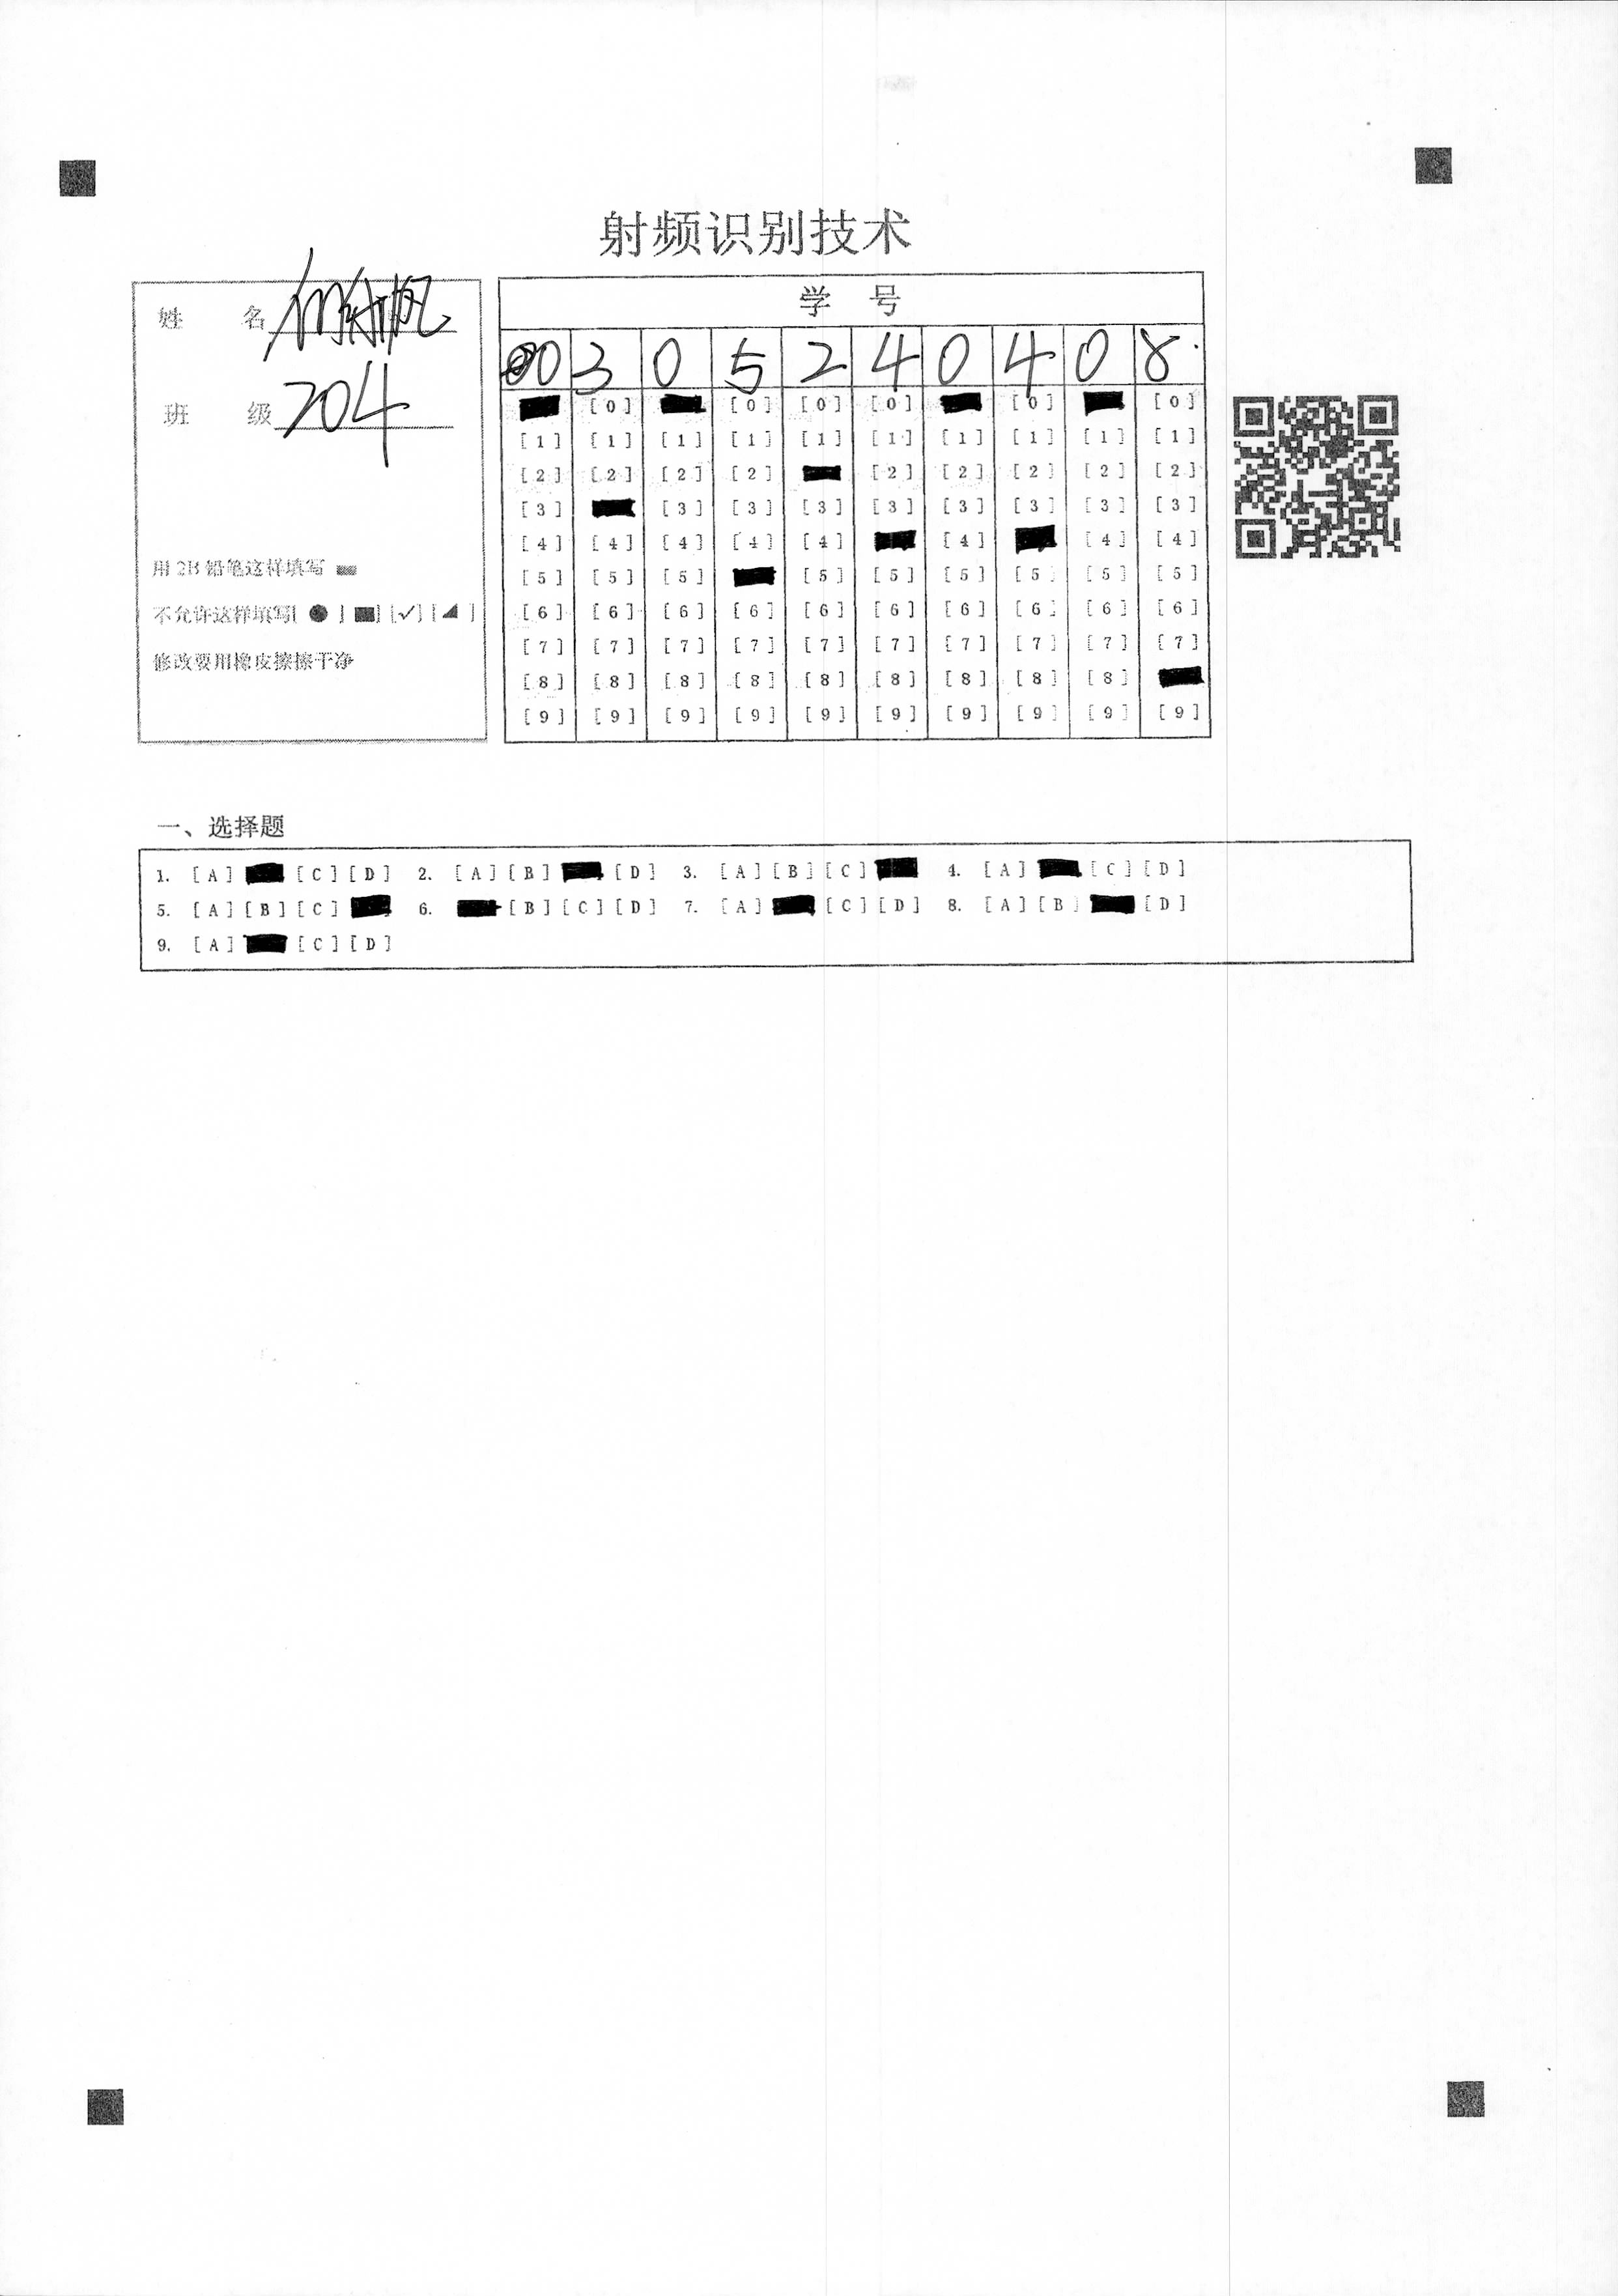 射频识别技术
姓 名
班 级 204
用 2B 铅笔这样填写
不允许这样填写[ ● ] [■] [✓] [◢ ]
修改要用橡皮擦擦干净
学 号
0 3 0 5 2 4 0 4 0 8
[0] [0] [0] [0] [0] [0]
[1] [1] [1] [1] [1] [1] [1] [1] [1] [1]
[2] [2] [2] [2] [2] [2] [2] [2] [2]
[3] [3] [3] [3] [3] [3] [3] [3] [3]
[4] [4] [4] [4] [4] [4] [4] [4]
[5] [5] [5] [5] [5] [5] [5] [5] [5]
[6] [6] [6] [6] [6] [6] [6] [6] [6] [6]
[7] [7] [7] [7] [7] [7] [7] [7] [7] [7]
[8] [8] [8] [8] [8] [8] [8] [8] [8]
[9] [9] [9] [9] [9] [9] [9] [9] [9] [9]
一、选择题
1. [A] [C] [D] 2. [A] [B] [D] 3. [A] [B] [C] 4. [A] [C] [D]
5. [A] [B] [C] 6. [B] [C] [D] 7. [A] [C] [D] 8. [A] [B] [D]
9. [A] [C] [D]